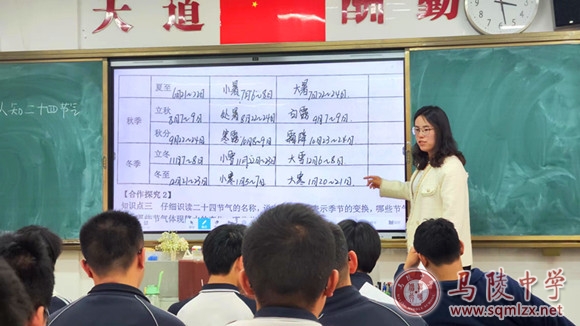 大道 酬勤
认知二十四节气
夏至 6月21~22日 小暑 7月6~8日 大暑 7月22~24日
秋季 立秋 8月7~9日 处暑 8月22~24日 白露 9月7~9日
秋分 9月22~24日 寒露 10月8~9日 霜降 10月23~24日
冬季 立冬 11月7~8日 小雪 11月22日~23日 大雪 12月6~8日
冬至 12月21~23日 小寒 1月5~7日 大寒 1月20~21日
【合作探究2】
知识点三 仔细识读二十四节气的名称，表示季节的变换，哪些节气
哪些节气体现降水的变化
马陵中学
www.sqmlzx.net